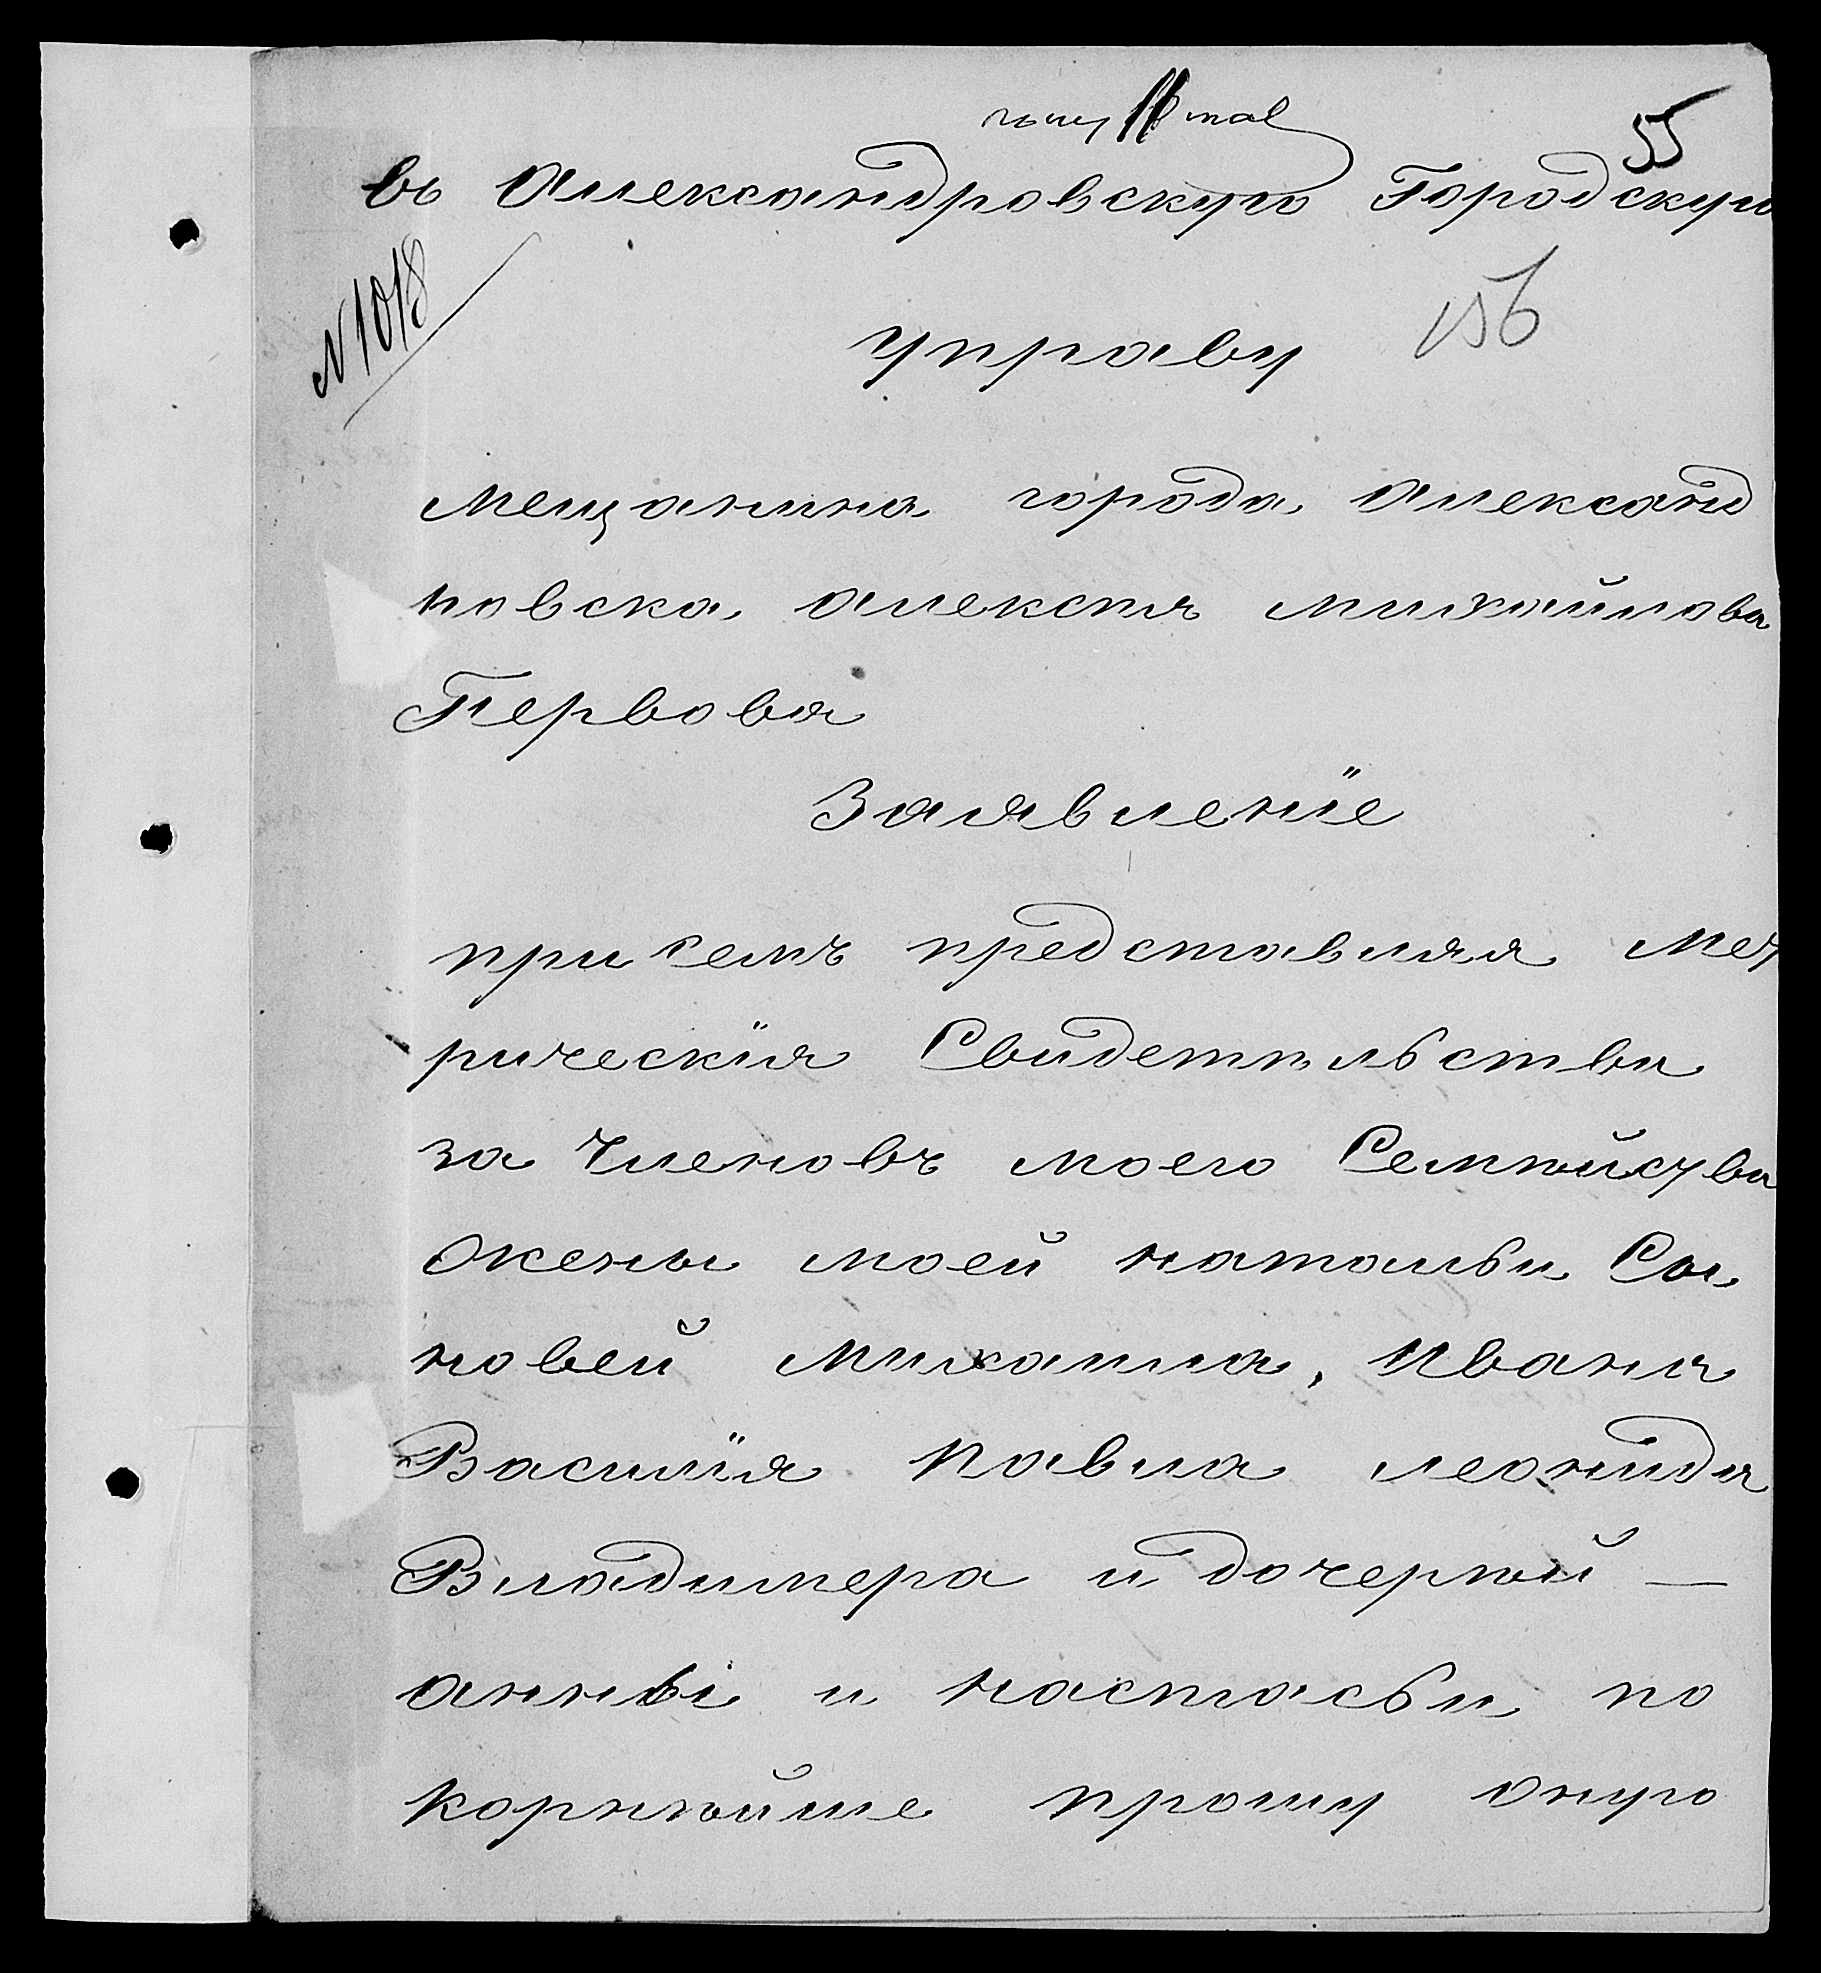 55
въ Александровскую Городскую
N1018
управу
156
Мещанина города Александ
ровска Алексѣя Михайлова
Первова
Заявленіе
при семъ представляя мет
рическія Свидетельства
за Членовъ моего Семѣйства
жены моей натальи Сы
новей Михаила, Ивана
Василія Павла леонида
Владимера и дочерѣй —
анныі и настасьи по
корнѣйше прошу оную